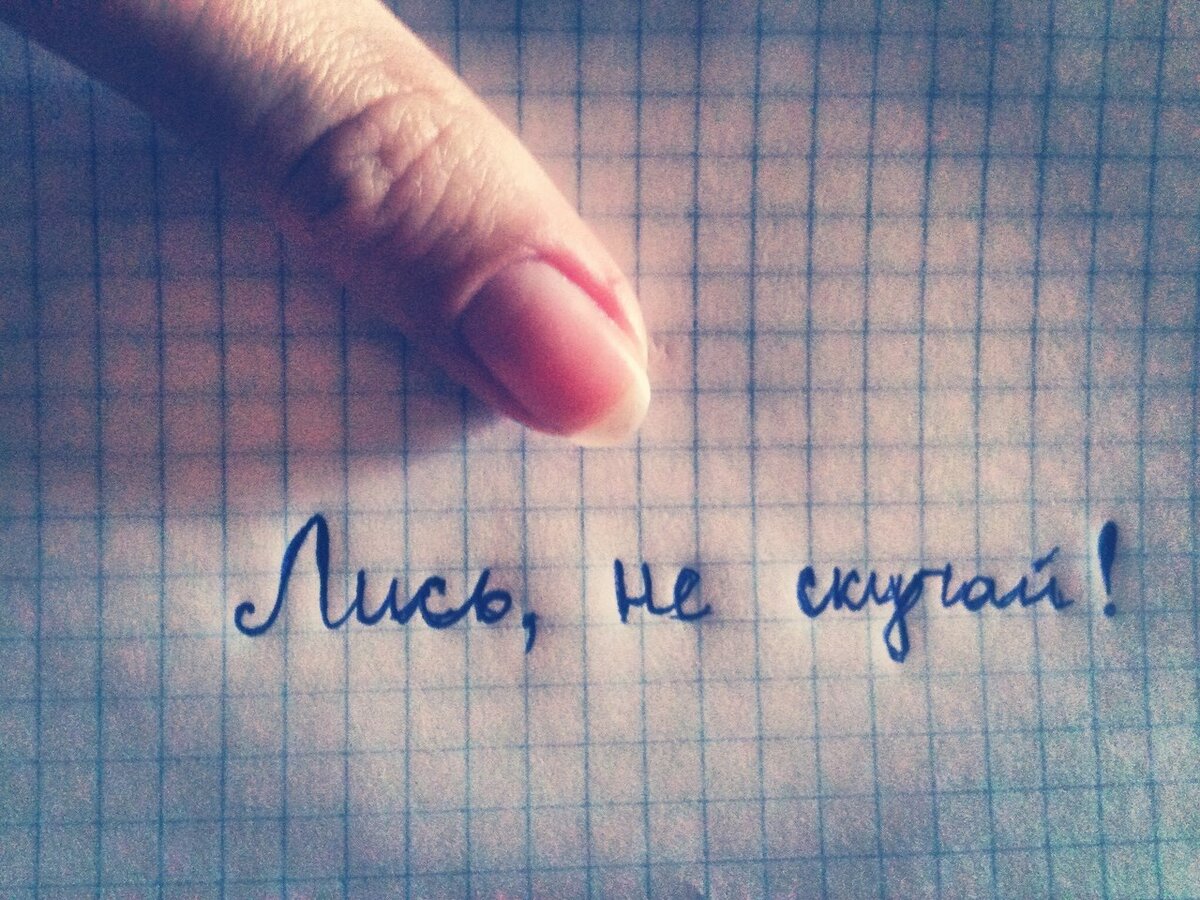 Лись, не скучай!